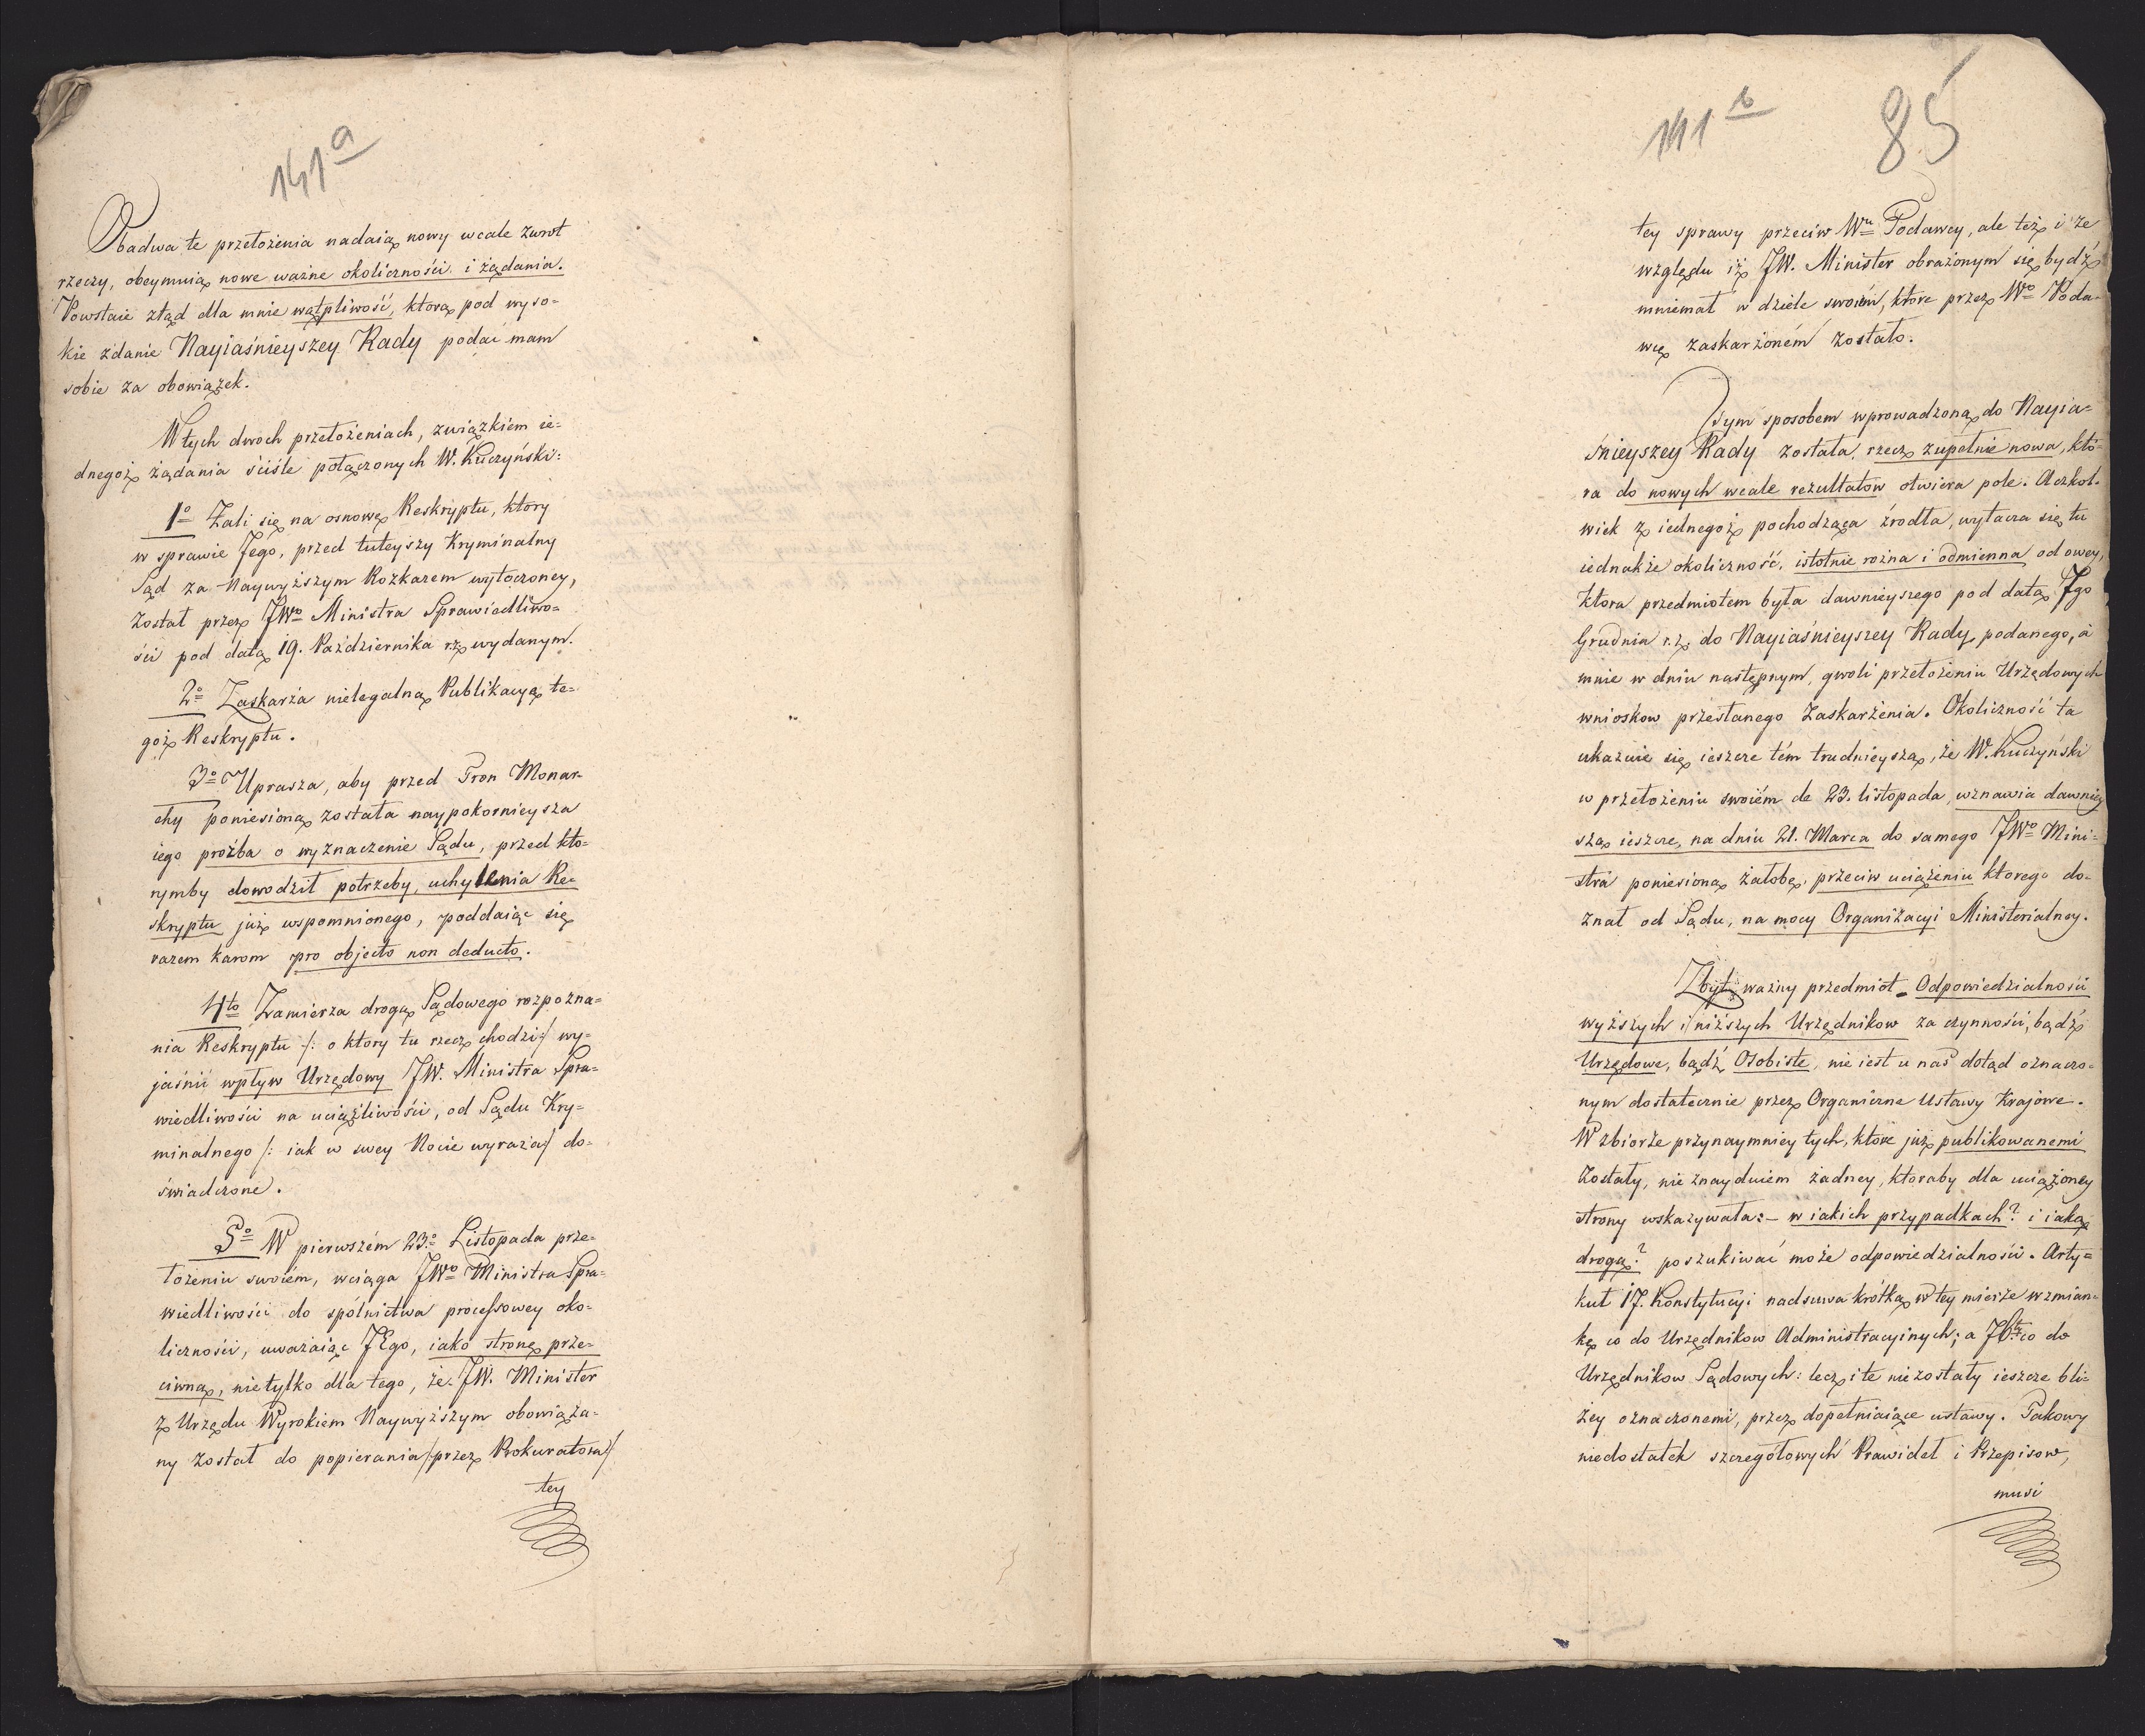 141a
Obadwa te przełożenia nadaią nowy wcale zwrot
rzeczy, obeymuią nowe ważne okoliczności i żądania.
Powstaie ztąd dla mnie wątpliwość, ktorą pod wyso=
kie zdanie Nayiaśnieyszey Rady podać mam
sobie za obowiązek.
W tych dwoch przełożeniach, związkiem ie=
dnegoż żądania ściśle połączonych W. Kuczyński:
1o Żali się na osnowę Reskryptu, ktory
w sprawie Jego, przed tuteyszy Kryminalny
Sąd za Naywyższym Rozkazem wytoczoney,
został przez JWo Ministra Sprawiedliwo=
ści pod datą 19. Października r.z. wydanym.
2o Zaskarża nielegalną Publikacyę te=
goż Reskryptu.
3o Uprasza, aby przed Tron Monar=
chy poniesioną została naypokornieysza
iego proźba o wyznaczenie Sądu, przed kto=
rymby dowodził potrzeby, uchylenia Re=
skryptu już wspomnionego, poddaiąc się
razem karom pro objecto non deducto.
4to Zamierza drogą Sądowego rozpozna=
nia Reskryptu /: o ktory tu rzecz chodzi:/ wy=
jaśnić wpływ Urzędowy JW. Ministra Spra=
wiedliwości na uciążliwości, od Sądu Kry=
minalnego /: iak w swey Nocie wyraża:/ do=
świadczone.
5o W pierwszém 23o Listopada prze=
łożeniu swoiém, wciąga JWo Ministra Spra=
wiedliwości do spólnictwa processowey oko=
liczności, uważaiąc JEgo, iako stronę prze=
ciwną, nietylko dla tego, że JW. Minister
z Urzędu Wyrokiem Naywyższym obowiąza=
ny został do popierania /:przez Prokuratora:/
tey
141b
85
tey sprawy przeciw Wu Podawcy, ale też i ze
względu iż JW. Minister obrażonym się bydź
mniemał w dziele swoiém, ktore przez Wo Poda=
wcę zaskarżoném zostało.
Tym sposobem wprowadzoną do Nayia=
śnieyszey Rady została, rzecz zupełnie nowa, któ=
ra do nowych wcale rezultatow otwiera pole. Aczkol=
wiek z iednegoż pochodząca źrodła, wytacza się tu
iednakże okoliczność, istotnie rożna i odmienna od owey,
ktora przedmiotem była dawnieyszego pod datą 7go
Grudnia r.z. do Nayiaśnieyszey Rady podanego, a
mnie w dniu następnym, gwoli przełożeniu Urzędowych
wnioskow przesłanego Zaskarżenia. Okoliczność ta
ukazuie się ieszcze tém trudnieyszą, że W. Kuczyński
w przełożeniu swoiém de 23. listopada, wznawia dawniey
szą ieszcze, na dniu 21. Marca do samego JWo Mini=
stra poniesioną żałobę, przeciw uciążeniu ktorego do=
znał od Sądu, na mocy Organizacyi Ministerialney.
Zbyt ważny przedmiot Odpowiedzialności
wyższych i niższych Urzędnikow za czynności, bądź
Urzędowe, bądź Osobiste, nie iest u nas dotąd oznaczo=
nym dostatecznie przez Organiczne Ustawy Krajowe.
W zbiorze przynaymniey tych, które już publikowanemi
zostały, nie znayduiem żadney, któraby dla uciążoney
strony wskazywała:– w iakich przypadkach? i iaką
drogą? poszukiwać może odpowiedzialności. Arty=
kuł 17. Konstytucyi nadsuwa krótką w tey mierze wzmian=
kę co do Urzędnikow Administracyinych; a 76ty co do
Urzędnikow Sądowych: lecz i te nie zostały ieszcze bli=
żey oznaczonemi, przez dopełniaiące ustawy. Takowy
niedostatek szczegółowych Prawideł i Przepisow,
musi